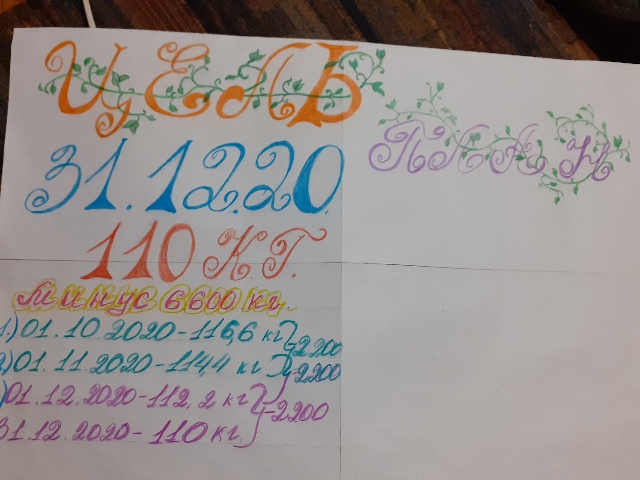 ЦЕЛЬ
ПЛАН
31.12.20.
110 К.Г.
минус 6600 кг.
1.) 01.10.2020-116,6 кг } -2200
2) 01.11.2020-114,4 кг } -2200
) 01.12.2020-112,2 кг } -2200
31.12.2020-110 кг.